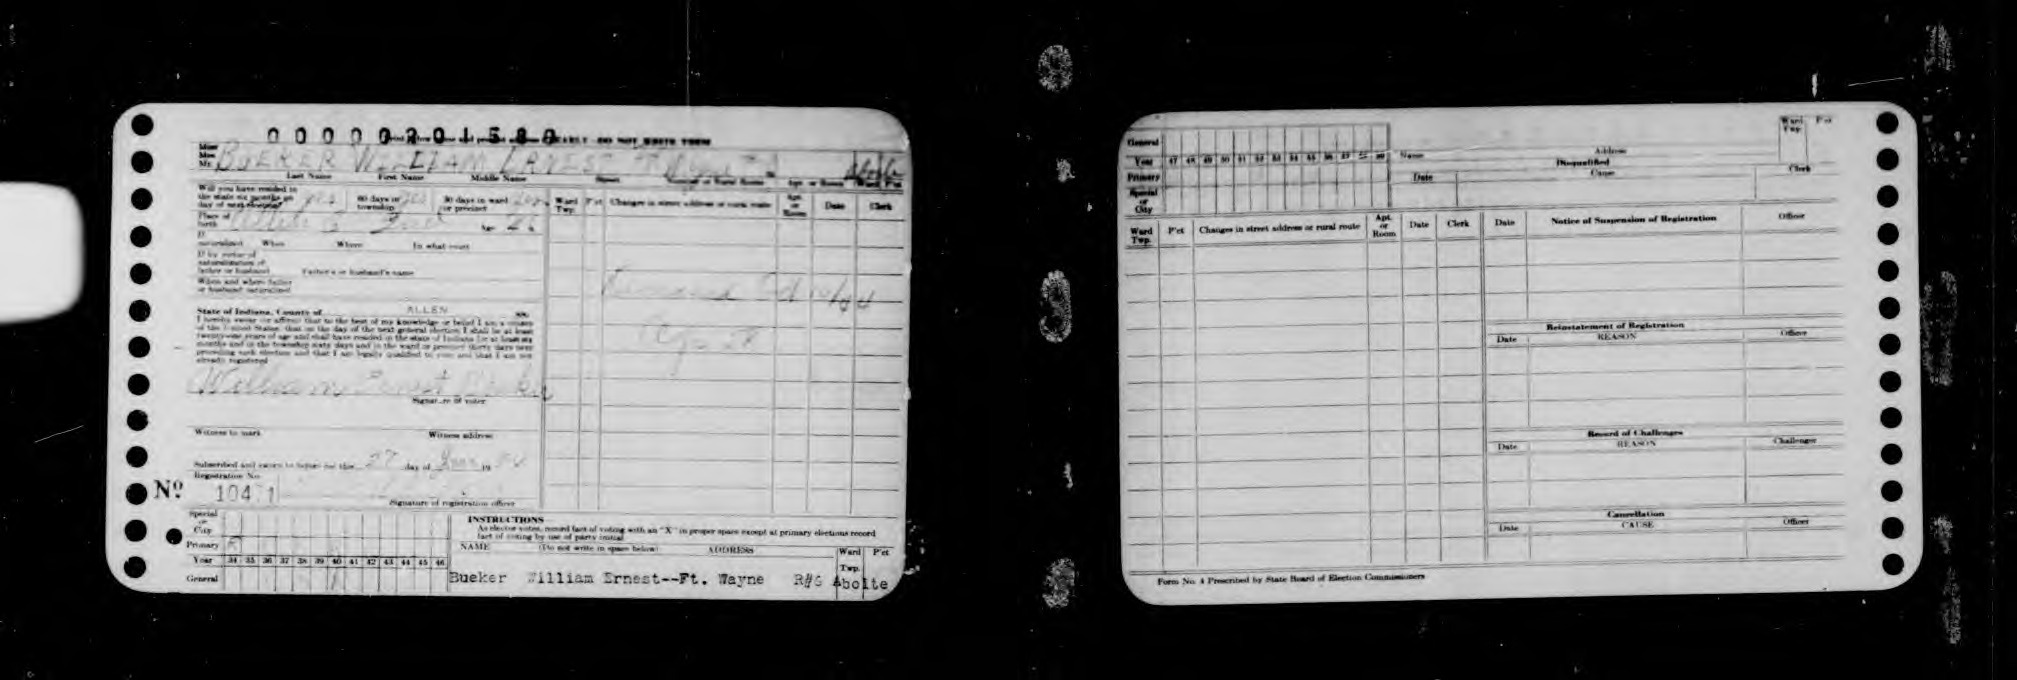 0 0 0 0 0 2 0 1 5 8 0
CLEARLY DO NOT WRITE THESE
Miss
Mrs.
Mr. BUEKER WILLIAM ERNEST
Last Name First Name Middle Name Street or Rural Route Apt. or Room Ward P'ct
Will you have resided in
the state six months on
day of next election? yes 60 days in township yes 30 days in ward or precinct yes
Place of
birth Allen Co Ind Age
If
naturalized When Where In what court
If by virtue of
naturalization of
father or husband Father's or husband's name
When and where father
or husband naturalized
State of Indiana, County of ALLEN ss:
I hereby swear or affirm that to the best of my knowledge or belief I am a citizen
of the United States; that on the day of the next general election I shall be at least
twenty-one years of age and shall have resided in the state of Indiana for at least six
months and in the township sixty days and in the ward or precinct thirty days next
preceding such election and that I am legally qualified to vote and that I am not
already registered
William Ernest Bueker
Signature of voter
Witness to mark Witness address
Subscribed and sworn to before me this 27 day of 19
Registration No.
Nº 10471
Signature of registration officer
Ward Twp. P'ct Changes in street address or rural route Apt. or Room Date Clerk
Special
or
City
Primary
Year 34 35 36 37 38 39 40 41 42 43 44 45 46
General
INSTRUCTIONS
As elector votes, record fact of voting with an "X" in proper space except at primary elections record
fact of voting by use of party initial
NAME (Do not write in space below) ADDRESS Ward Twp. P'ct
Bueker William Ernest--Ft. Wayne R#6 Aboite
General
Year 47 48 49 50 51 52 53 54 55 56 57 58 59
Primary
Special
or
City
Name Address Ward Twp. P'ct
Disqualified
Date Cause Clerk
Ward Twp. P'ct Changes in street address or rural route Apt. or Room Date Clerk
Date Notice of Suspension of Registration Officer
Reinstatement of Registration
Date REASON Officer
Record of Challenges
Date REASON Challenger
Cancellation
Date CAUSE Officer
Form No. 4 Prescribed by State Board of Election Commissioners